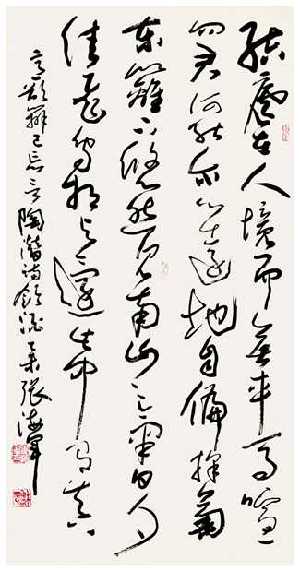 結廬在人境而無車馬喧
問君何能爾心遠地自偏採菊
東籬下悠然見南山山氣日夕
佳飛鳥相與還此中有真
意欲辨已忘言陶潛詩飲酒乙未張海軍